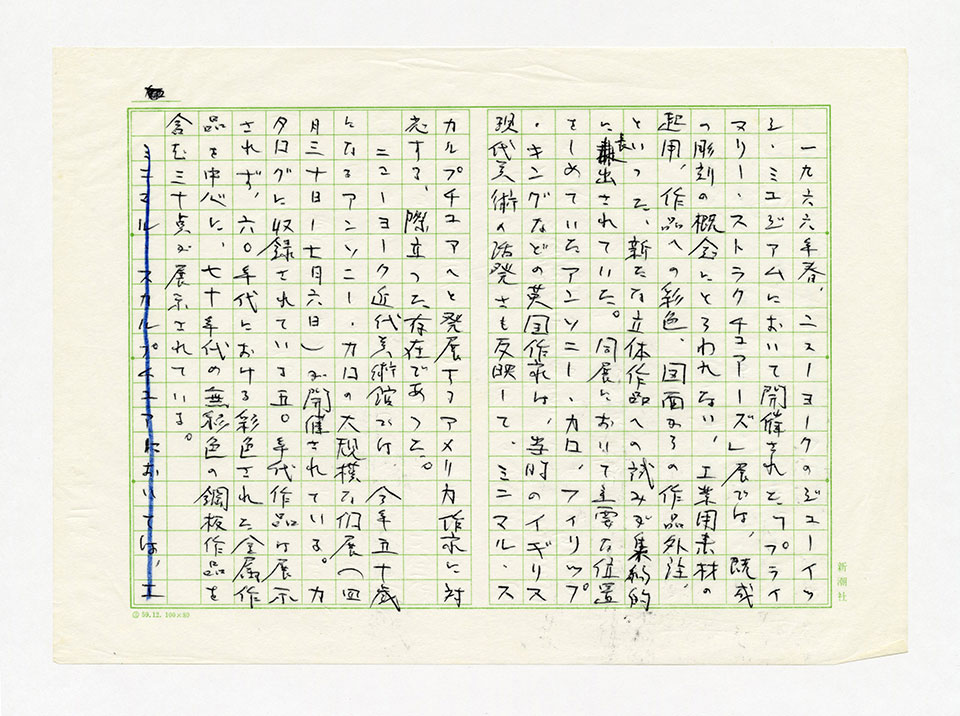 一九六六年春、ニューヨークのジューイッ
シ・ミュジアムにおいて開催された「プライ
マリー・ストラクチュアーズ」展では、既成
の彫刻の概念にとらわれない、工業用素材の
起用、作品への彩色、図面からの作品外注、
といった、新たな立体作品への試みが集約的
に表出されていた。同展において主要な位置
をしめていたアンソニー・カロ、フィリップ
・キングなどの英国作家は、当時のイギリス
現代美術の活発さも反映して、ミニマル・ス
カルプチュアへと発展するアメリカ作家に対
応する、際立った存在であった。
ニューヨーク近代美術館では、今年五十歳
になるアンソニー・カロの大規模な個展(四
月三十日ー七月六日)が開催されている。カ
タログに収録されている五〇年代作品は展示
されず、六〇年代における彩色された金属作
品を中心に、七十年代の無彩色の鋼板作品を
含む三十点が展示されている。
ミニマル スカルプチュアにおいては、工
新潮社
59.12. 100×80